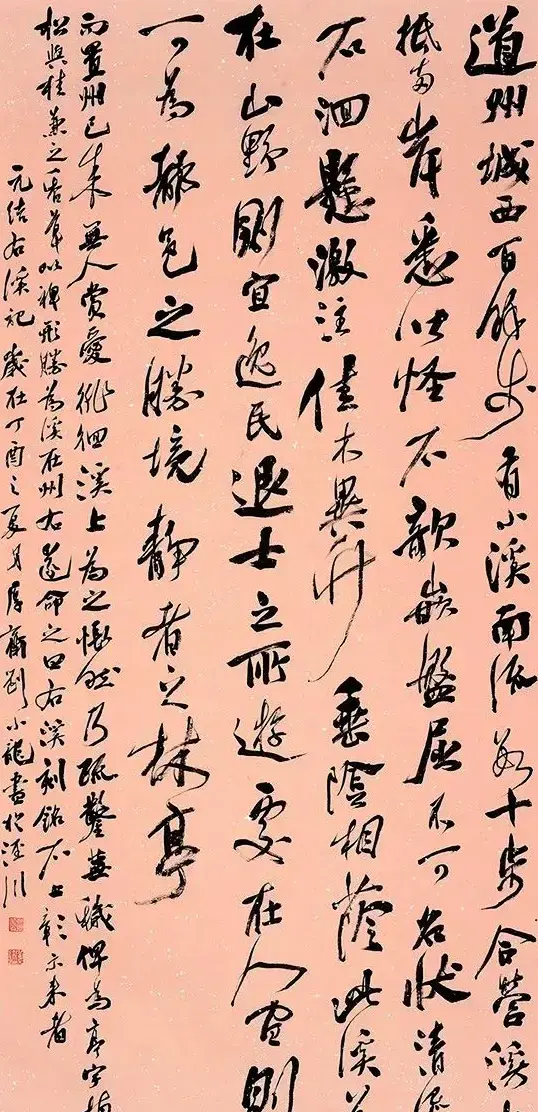 道州城西百餘步有小溪南流數十步合營溪
抵兩岸悉皆怪石欹嵌盤屈不可名狀清流
石洄懸激注佳木異竹垂陰相蔭此溪若
在山野則宜逸民退士之所遊處在人間則
可為都邑之勝境靜者之林亭
而置州已來無人賞愛徘徊溪上為之悵然乃疏鑿蕪穢俾為亭宇植
松與桂兼之香草以裨形勝為溪在州右遂命之曰右溪刻銘石上彰示來者
元結右溪記歲在丁酉之夏月劉小龍書於涇川